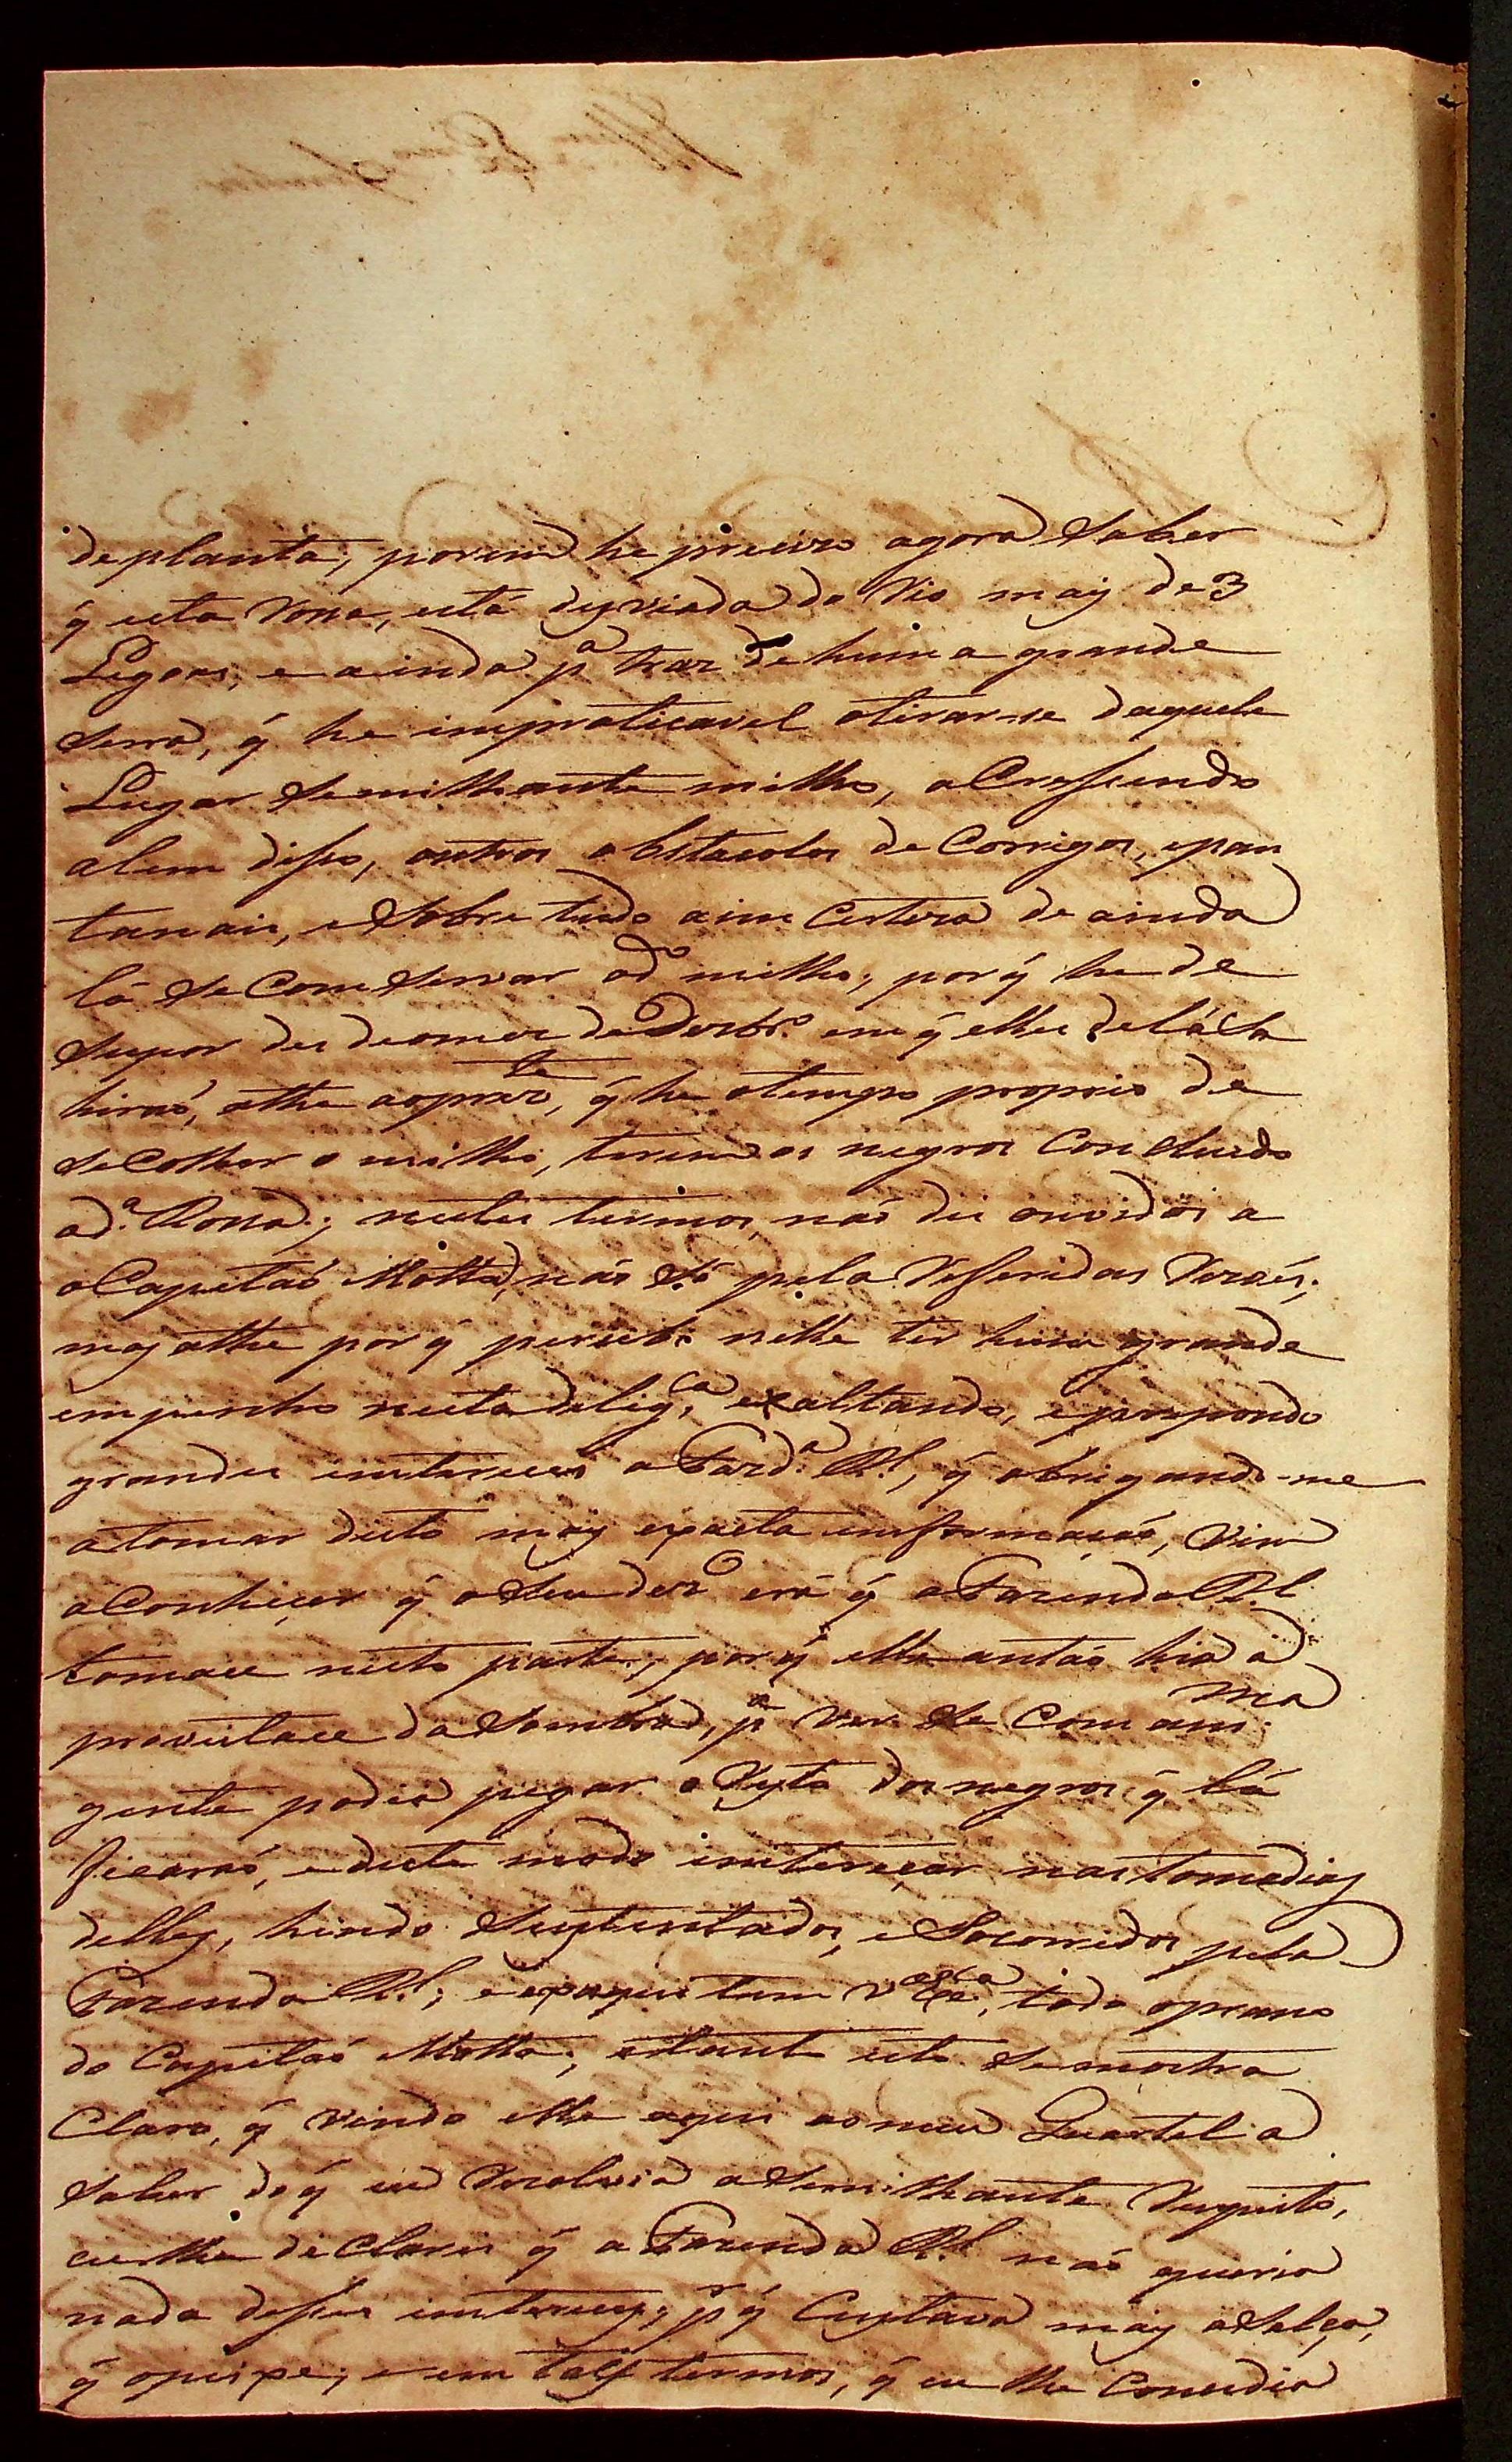 deplanta, porem he precizo agora saber
q̃ esta Rossa, está dezviada do Rio mais de 3
Legoas, e ainda pª traz de huma grande
serra, q̃ he impraticavel otirar-se daquele
Lugar semilhante milho, aCressendo
alem disso, outros obstacolos de Corrigos, epan
tanais, esobre tudo aimCerteza de ainda
lá seComservar od.º milho; porq̃ he de
supor des deomes deDezbr.º em q̃ elles delá sa
hiraó, athe aoprez.te, q̃ he otempo proprio de
secolher o milho, terem os negros Concluido
ad.ª Rossa; nestes termos, naó dei ouvidos a
oCapitaó Motta, naó só pela Referidas Rezóis;
mas athe porq̃ percebi nelle ter hum grande
empenho nesta delig.ca, exaltando, epropondo
grandes intereces aFazd.ª R.l, q̃ obrigando-me
atomar disto mais exacta imformaçaó, vim
aConhecer q̃ oSeu dez.º erá q̃ aFazenda R.l
tomace nisto parte, porq̃ elle antaó hia a
proveitace daSombra, pª ver se Com am.ma
gente podia pegar o Resto dos negros q̃ lá
ficaraó, edeste modo intereçar nas tomadias
delles, hindo Sustentados, eSocorridos pela
Fazenda R.l; eexaqui tem V Ex.cª todo oprano
do Capitaó Motta; etanto isto semostra
Claro, q̃ vindo elle aqui aomeu Quartel a
saber doq̃ eu Rezolvia aSemilhante Respeito,
eulhe declarei q̃ aFazenda R.l naó queria
nada desses intereces; p.r q̃ Custava mais aSalça,
q̃ opeixe; e em tais termos, q̃ eu lhe Concedia